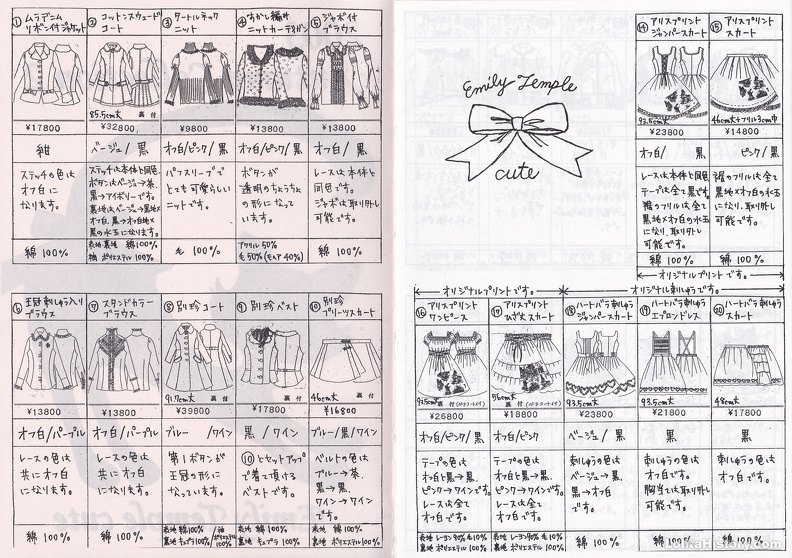 ① ムラデニム
リボン付ジャケット
¥17800
紺
ステッチの色は
オフ白に
なります。
綿 100%
② コットンスウェード
コート
85.5cm丈 裏付
¥32800
ベージュ/黒
ステッチは本体と同色。
ボタンはベージュ→茶、
黒→アイボリーです。
裏地はベージュ→黒地×
オフ白、黒→オフ白地×
黒の水玉になります。
表地 裏地 綿100%
袖 ポリエステル100%
③ タートルネック
ニット
¥9800
オフ白/ピンク/黒
パフスリーブで
とても可愛らしい
ニットです。
毛 100%
④ すかし編み
ニットカーディガン
¥13800
オフ白/ピンク/黒
ボタンが
透明のちょうちょ
の形になって
います。
アクリル 50%
毛50%(モヘア40%)
⑤ ジャボ付
ブラウス
¥13800
オフ白/黒
レースは本体と
同色です。
ジャボは取り外し
可能です。
綿 100%
⑥ 王冠刺しゅう入り
ブラウス
¥13800
オフ白/パープル
レースの色は
共にオフ白
になります。
綿 100%
⑦ スタンドカラー
ブラウス
¥13800
オフ白/パープル
レースの色は
共にオフ白
になります。
綿 100%
⑧ 別珍コート
91.7cm丈 裏付
¥39800
ブルー/ワイン
第1ボタンが
王冠の形に
なっています。
表地 綿100%
裏地 キュプラ100%
袖 ポリエステル100%
⑨ 別珍ベスト
¥17800
黒/ワイン
⑩とセットアップ
で着て頂ける
ベストです。
表地 綿100%
裏地 キュプラ100%
⑩ 別珍
プリーツスカート
46cm丈 裏付
¥16800
ブルー/黒/ワイン
ベルトの色は
ブルー→茶、
黒→黒、
ワイン→ワイン
です。
表地 綿100%
裏地 ポリエステル100%
Emily Temple
cute
⑭ アリスプリント
ジャンパースカート
93.5cm丈
¥23800
オフ白/黒
レースは本体と同色、
テープは全て黒です。
裾のフリルは全て
黒地×オフ白の水玉
になり、取り外し
可能です。
綿 100%
⑮ アリスプリント
スカート
46cm丈+フリル3cm巾
¥14800
ピンク/黒
裾のフリルは全て
黒地×オフ白の水玉
になり、取り外し
可能です。
綿 100%
オリジナルプリントです。
オリジナルプリントです。
オリジナル刺しゅうです。
⑯ アリスプリント
ワンピース
93.5cm丈
¥26800
オフ白/ピンク/黒
テープの色は
オフ白と黒→黒、
ピンク→ワインです。
レースは全て
オフ白です。
表地 レーヨン90% 毛10%
裏地 ポリエステル100%
⑰ アリスプリント
ひざ丈スカート
56cm丈
¥18800
オフ白/ピンク
テープの色は
オフ白と黒→黒、
ピンク→ワインです。
レースは全て
オフ白です。
表地 レーヨン90% 毛10%
裏地 ポリエステル100%
⑱ ハートバラ刺しゅう
ジャンパースカート
93.5cm丈
¥23800
ベージュ/黒
刺しゅうの色は
ベージュ→黒、
黒→オフ白
です。
綿 100%
⑲ ハートバラ刺しゅう
エプロンドレス
93.5cm丈
¥21800
黒
刺しゅうの色は
オフ白です。
胸当ては取り外し
可能です。
綿 100%
⑳ ハートバラ刺しゅう
スカート
48cm丈
¥17800
黒
刺しゅうの色は
オフ白です。
綿 100%